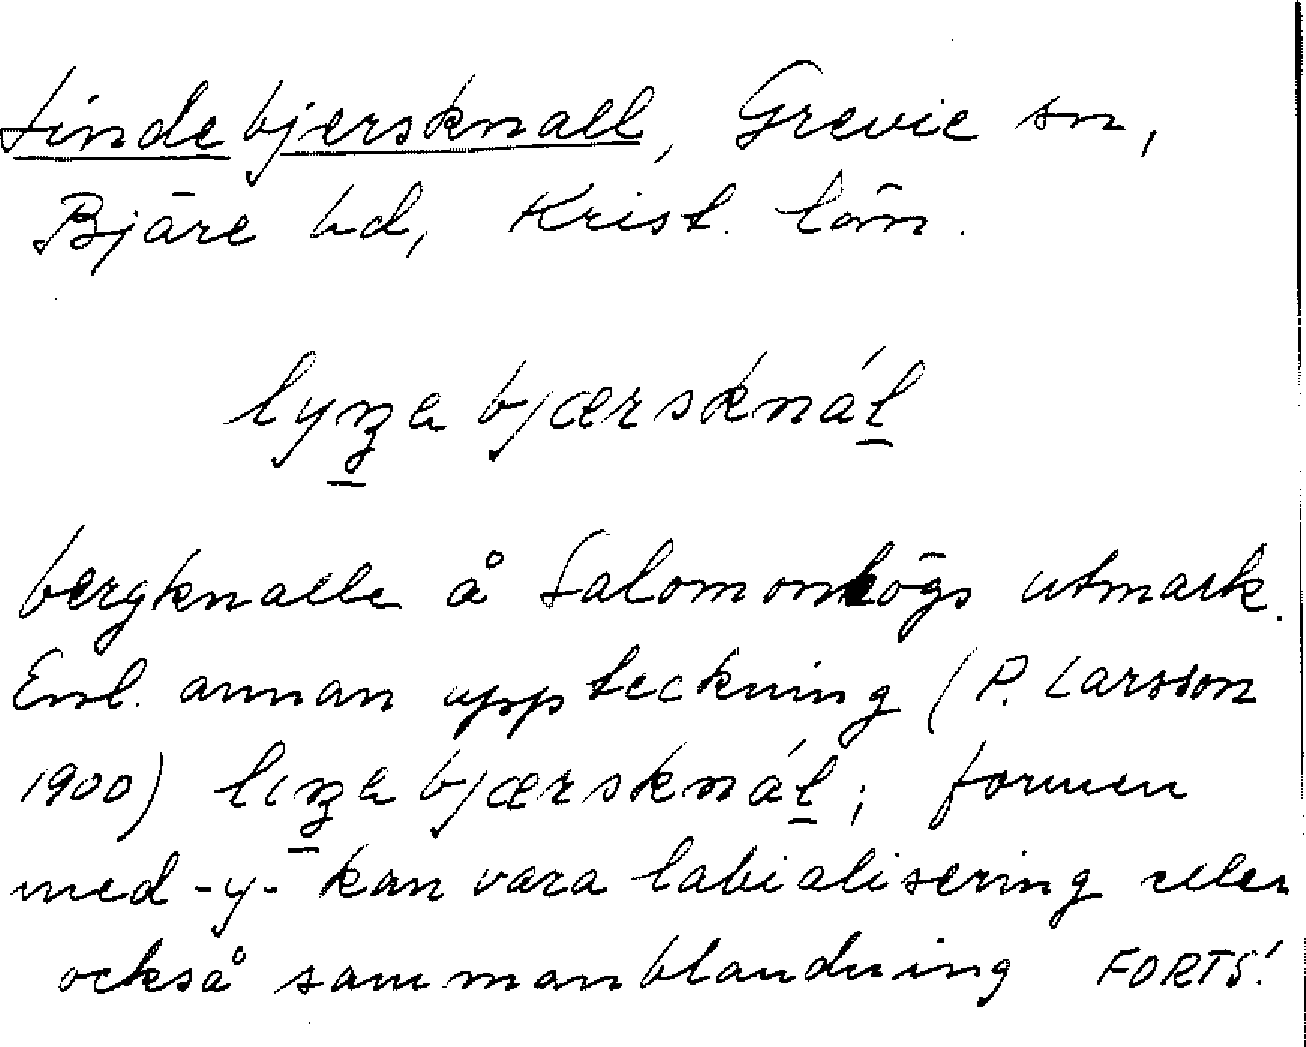 Lindebjersknall, Grevie sn,
Bjäre hd, Krist. län.
lyŋa bjærsknál
bergknalle å Salomonhögs utmark.
Enl. annan uppteckning (P. Larsson
1900) lıŋa bjærsknál; formen
med -y- kan vara labialisering eller
också sammanblandning FORTS!